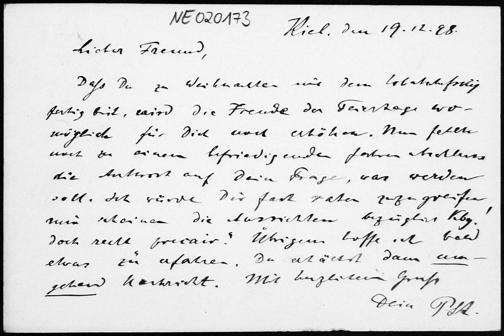 NE020173
Kiel, den 19.12.98.
Lieber Freund,
Daß Du zu Weihnachten mit dem Lobatschefskij
fertig bist, wird die Freude der Feiertage wo-
möglich für Dich noch erhöhen. Nun fehlte
noch zu einem befriedigenden Jahresabschluss
die Antwort auf Deine Frage, was werden
soll. Ich würde Dir fast raten zuzugreifen!
mir scheinen die Aussichten bezüglich Kbg.
doch recht precair. Übrigens hoffe ich bald
etwas zu erfahren. Du erhältst dann um-
gehend Nachricht. Mit herzlichem Gruß
Dein PSt.